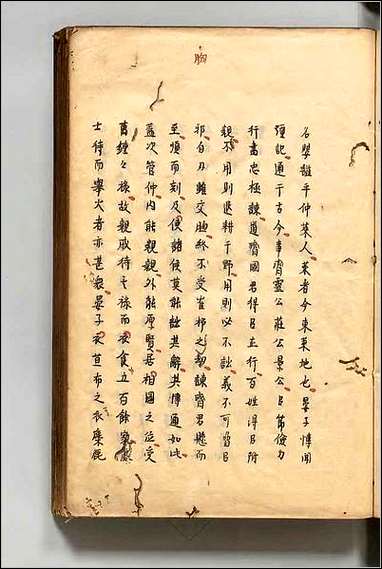 胸
名嬰謚平仲萊人萊者今東萊地也晏子博聞
彊記通于古今事齊靈公莊公景公㠯節儉力
行盡忠極諫道齊國君得㠯正行百姓得㠯附
親不用則退耕于野用則必不詘義不可脅㠯
邪白刃雖交胸終不受崔杼之劫諫齊君懸而
至順而刻及使諸侯莫能詘其辭其博通如此
蓋次管仲內能親親外能厚賢居相國之位受
萬鍾之祿故親戚待其祿而衣食五百餘家處
士待而舉火者亦甚衆晏子衣苴布之衣麋鹿